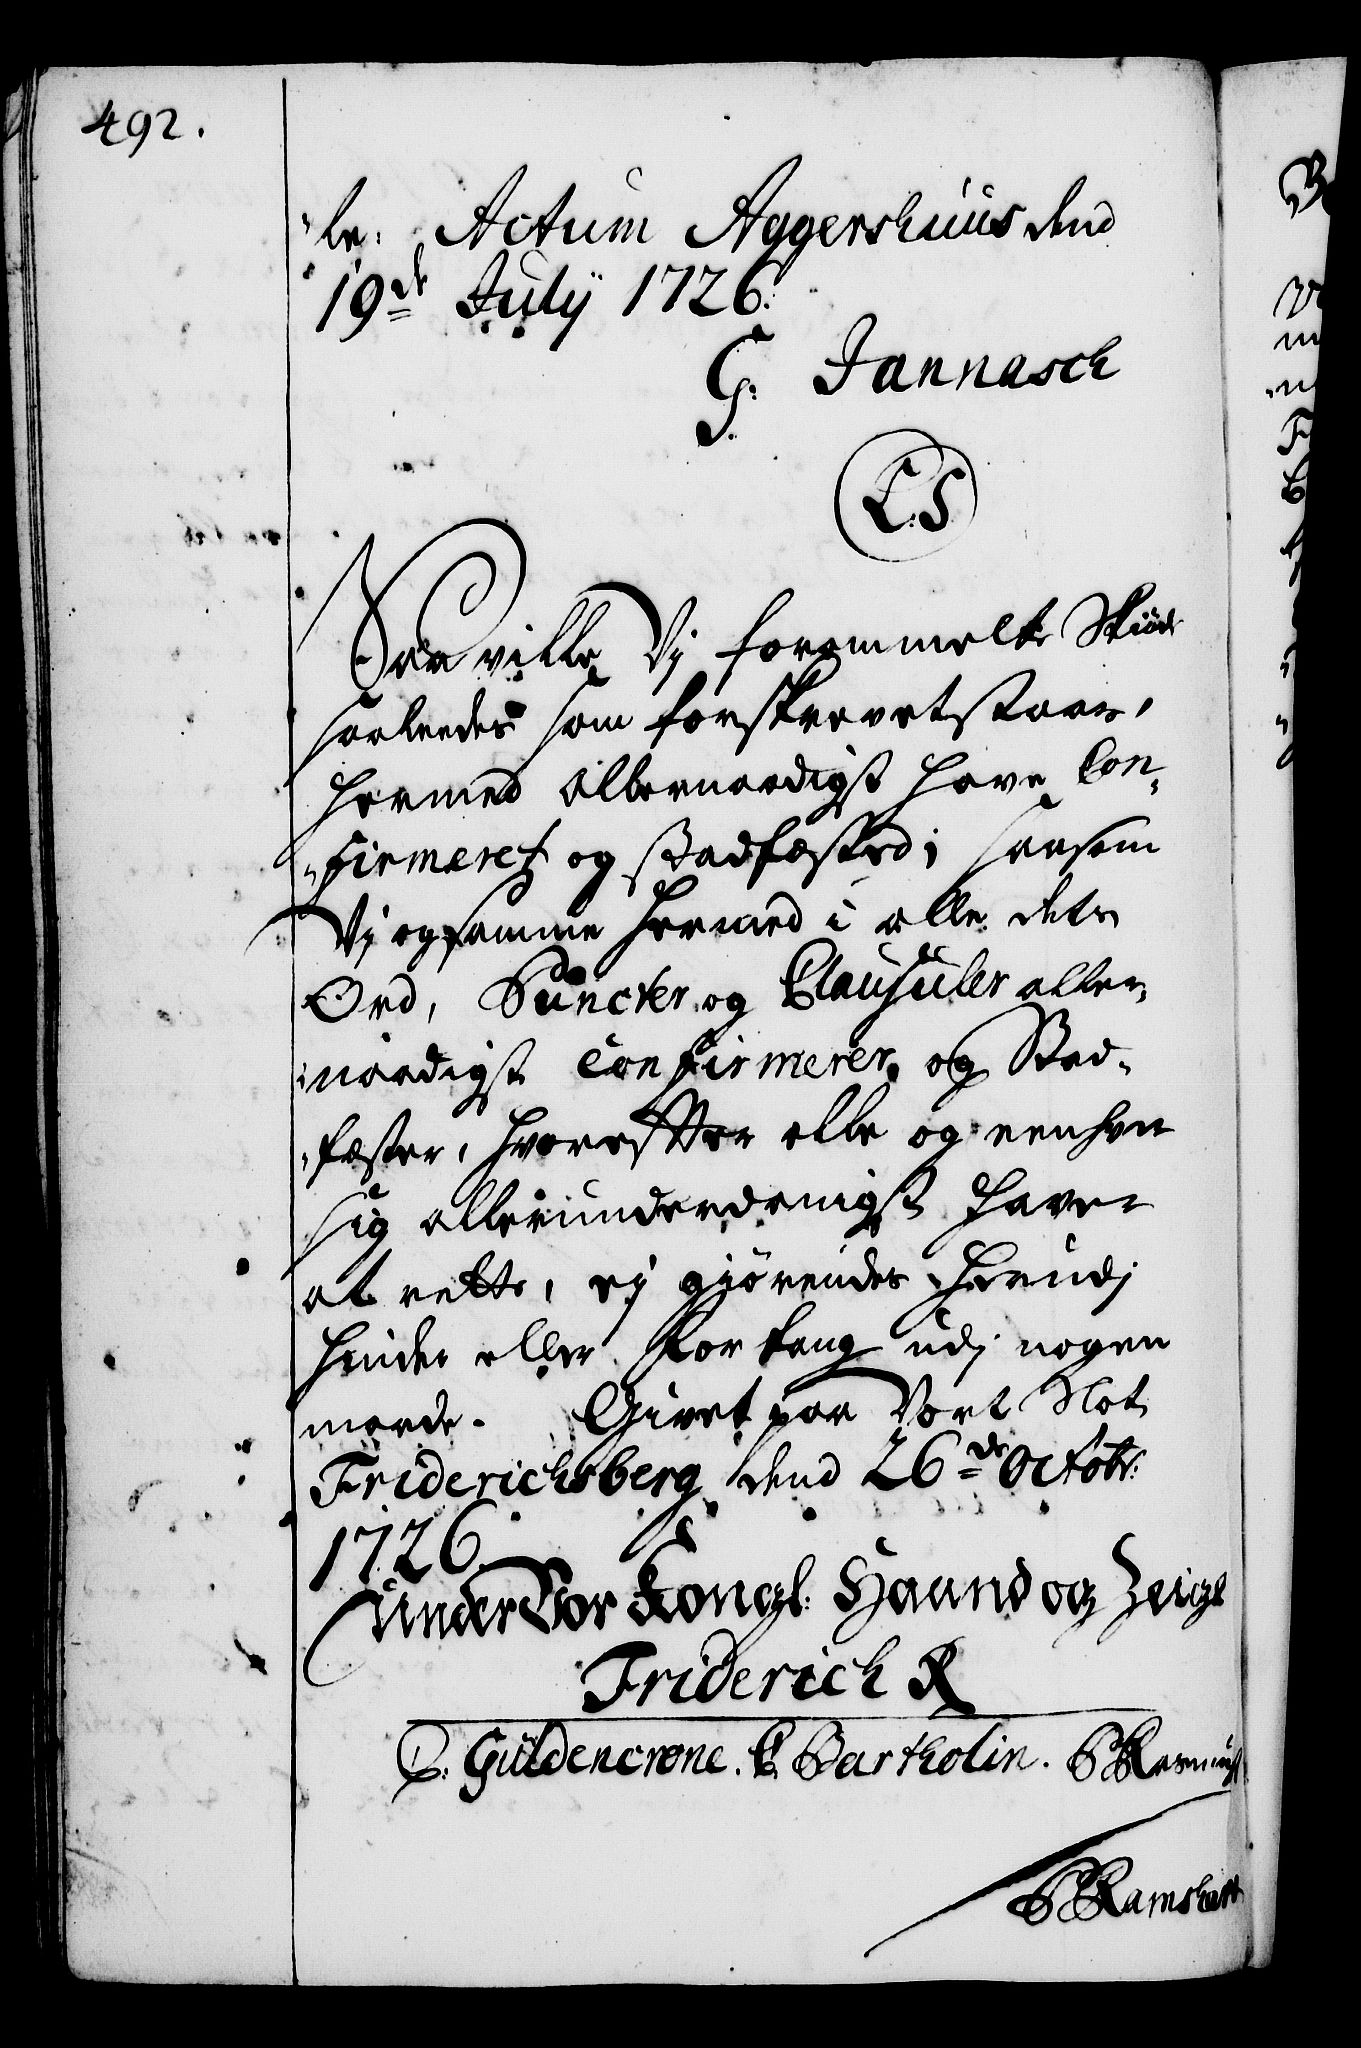 492.
"le: Actum Aggershuus dend
19de July 1726.
G. Jannasch
L.S
Saa ville Vj forommelte Skiöde
saaleedes som forskrevet staar,
hermed Allernaadigst have Con-
"firmeret og stadfæsted; saasom
Vj og samme hermed i alle dets
Ord, Puncter og Clausuler aller-
"naadigst Confirmerer og Stad-
"fæster, hvorefter alle og eenhver
sig allerunderdanigst haver
at rette, ej giörendes herudj
hinder eller Forfang udj nogen
maade. Givet paa Vort Slot
Friderichsberg dend 26de Octobr:
1726.
Under Vor Kongl: Haand og Zeigl
Friderich R
C. Güldencrone. C. Bartholin.